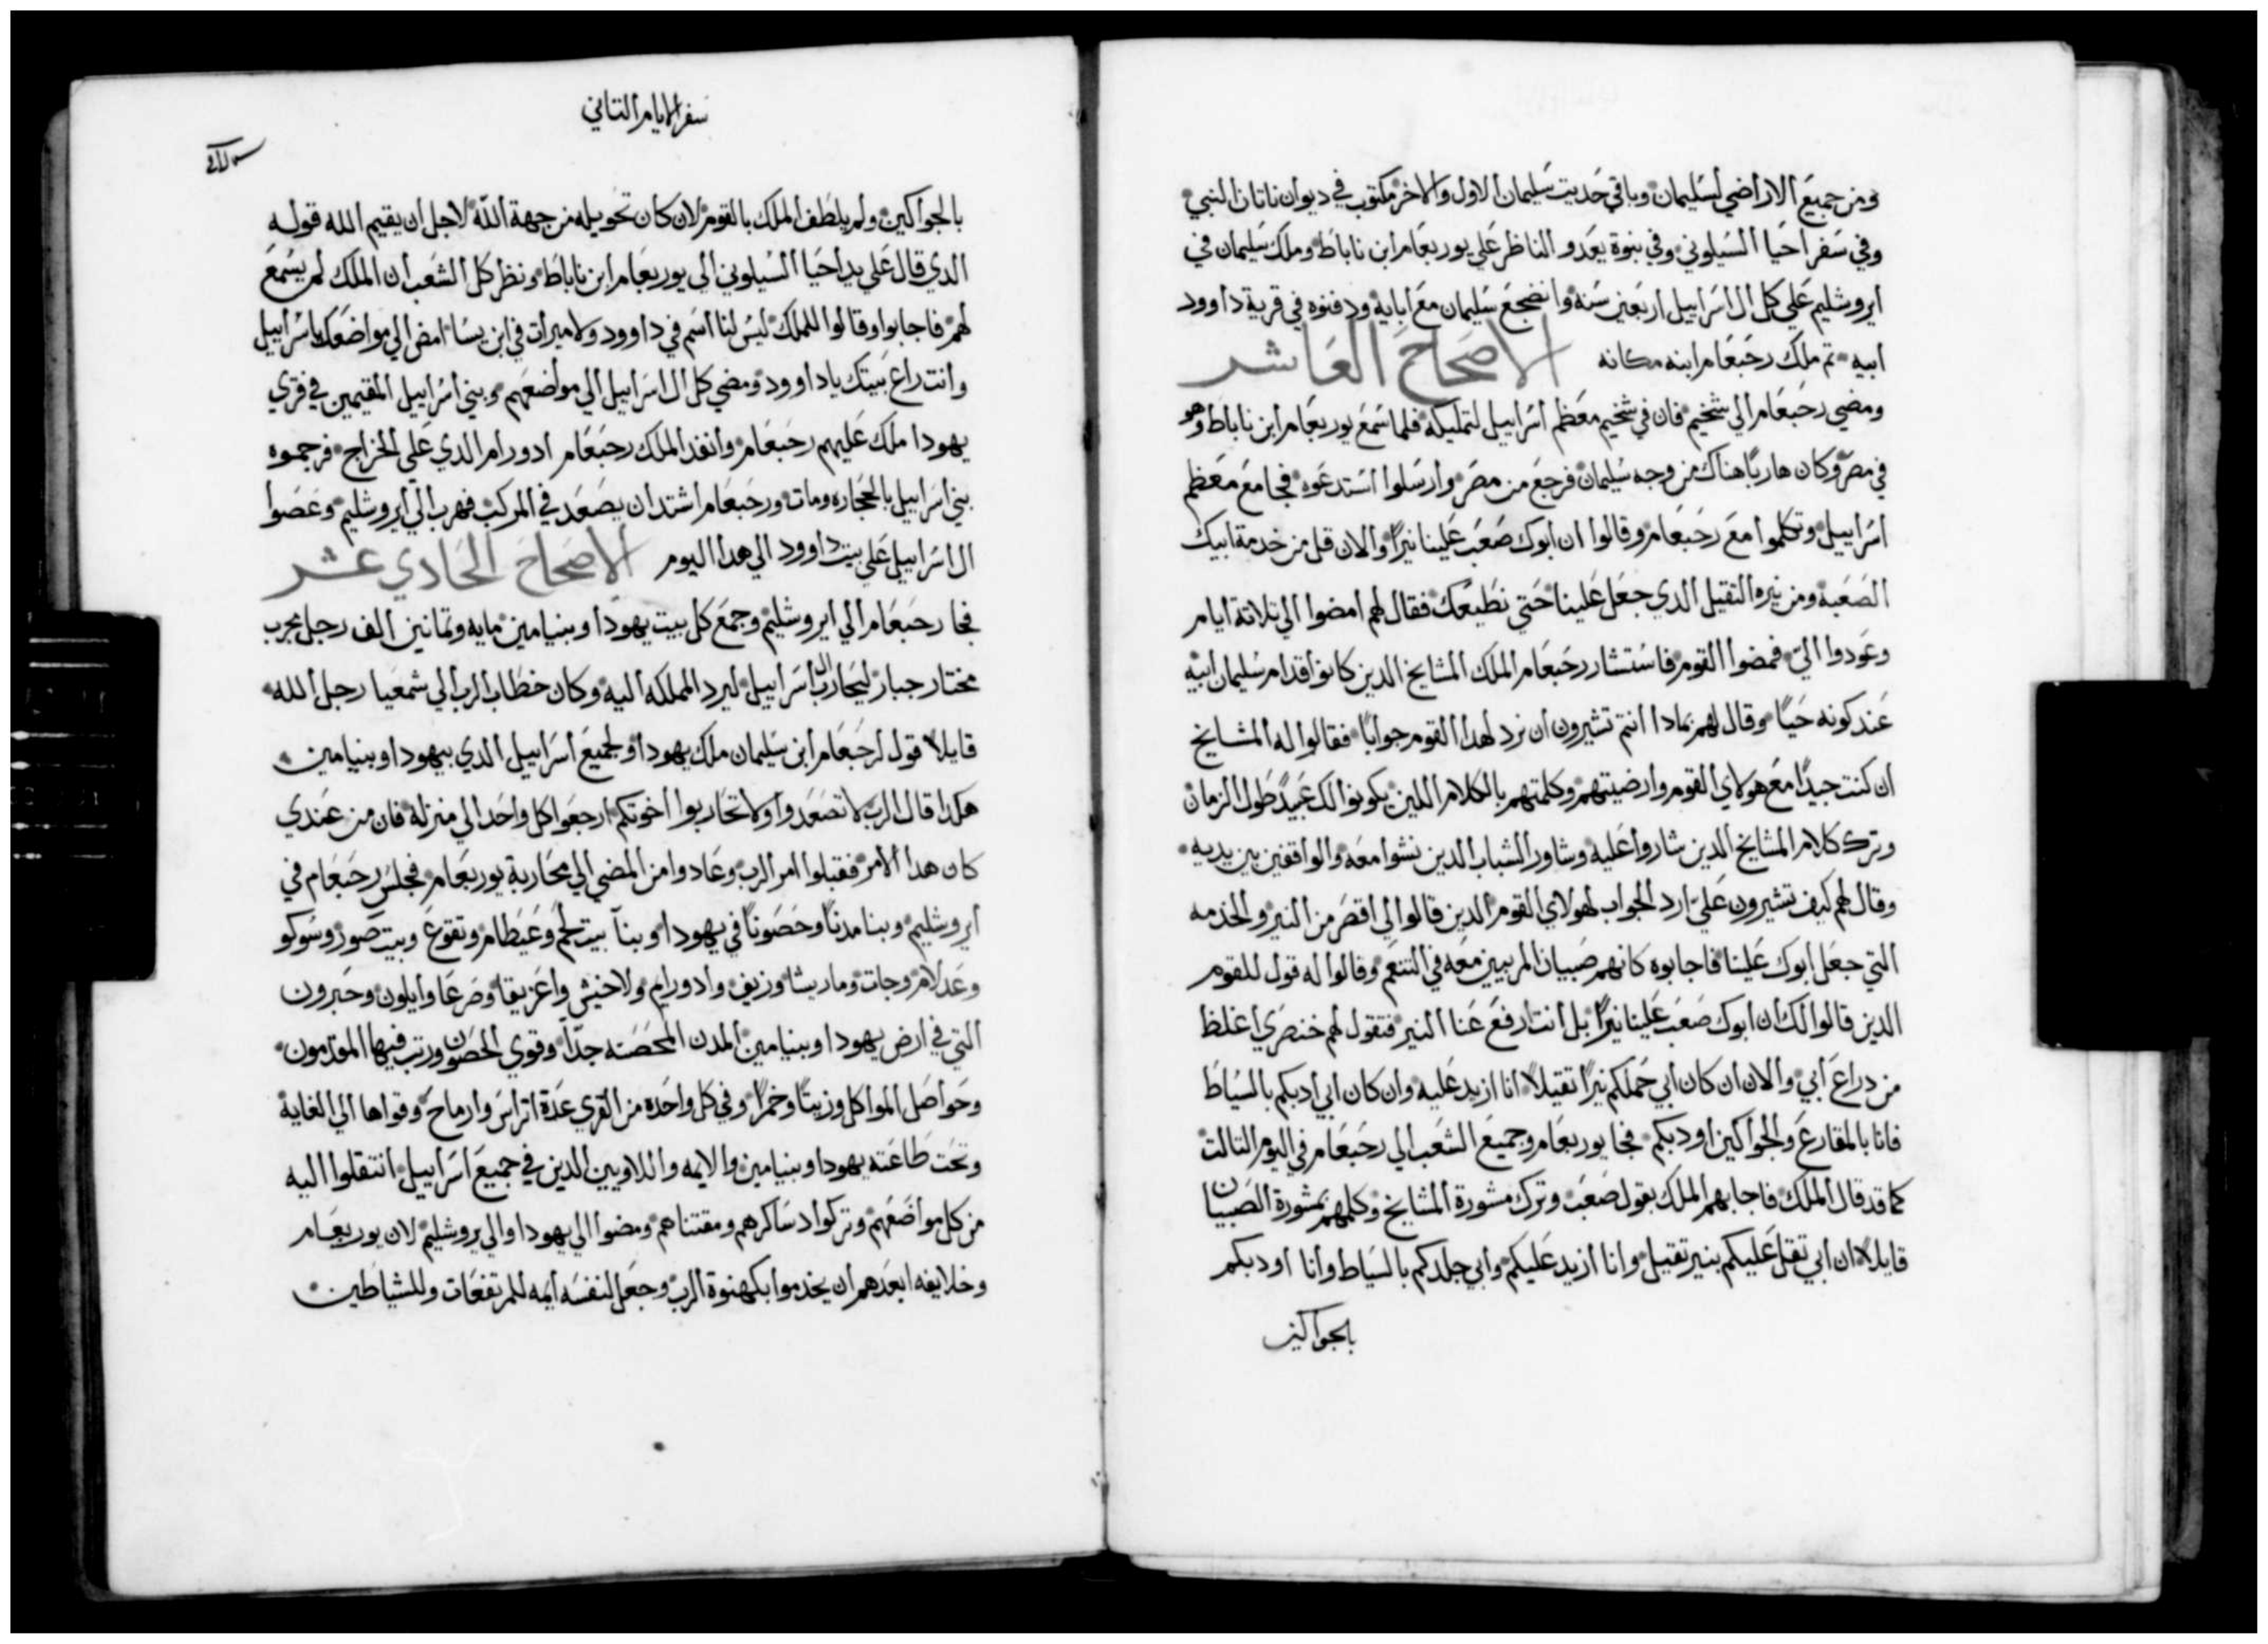 ومن جميع الاراضي لسليمان وباقي حديت سليمان الاول والاخر مكتوب في ديوان ناتان النبي
وفي سفر احيا السيلوني وفي نبوة يعدو الناظر علي يوربعام ابن ناباط وملك سليمان في
ايروشليم علي كل ال اسراييل اربعين سنه وانضجع سليمان مع ابايه ودفنوه في قرية داوود
ابيه تم ملك رحبعام ابنه مكانه الاصحاح العاشر
ومضي رحبعام الي شخيم فان في شخيم معظم اسراييل لتمليكه فلما سمع يوربعام ابن ناباط وهو
في مصر وكان هاربا هناك من وجه سليمان فرجع من مصر وارسلوا استدعوه فجا مع معظم
اسراييل وتكلموا مع رحبعام وقالوا ان ابوك صعب علينا نيرا والان قل من خدمة ابيك
الصعبة ومن نيره التقيل الدي جعل علينا حتي نطيعك فقال لهم امضوا الي تلاتة ايام
وعودوا الي فمضوا القوم فاستشار رحبعام الملك المشايخ الدين كانوا قدام سليمان ابيه
عند كونه حيا وقال لهم بمادا انتم تشيرون ان نرد لهدا القوم جوابا فقالوا له المشايخ
ان كنت جيدا مع هولاي القوم وارضيتهم وكلمتهم بالكلام اللين يكونوا لك عبيد طول الزمان
وترك كلام المشايخ الدين شاروا عليه وشاور الشباب الدين نشوا معه والواقفين بين يديه
وقال لهم كيف تشيرون علي ارد الجواب لهولاي القوم الدين قالوا لي اقصر من النير والخدمه
التي جعل ابوك علينا فاجابوه كانهم صبيان المربيين معه في التنعم وقالوا له قول للقوم
الدين قالوا لك ان ابوك صعب علينا نيرا بل انت ارفع عنا النير فتقول لهم خنصري اغلظ
من دراع ابي والان ان كان ابي حملكم نيرا تقيلا انا ازيد عليه وان كان ابي ادبكم بالسياط
فانا بالمقارع والجواكين اودبكم فجا يوربعام وجميع الشعب الي رحبعام في اليوم التالت
كما قد قال الملك فاجابهم الملك بقول صعب وترك مشورة المشايخ وكلمهم بمشورة الصبيان
قايلا ان ابي تقل عليكم بنير تقيل وانا ازيد عليكم وابي جلدكم بالسياط وانا اودبكم
بالجواكين
سفر الايام التاني
بالجواكين ولم يلطف الملك بالقوم لان كان تحويله من جهة الله لاجل ان يقيم الله قوله
الدي قال علي يد احيا السيلوني الي يوربعام ابن ناباط ونظر كل الشعب ان الملك لم يسمع
لهم فاجابوا وقالوا للملك ليس لنا اسم في داوود ولا ميرات في ابن يسا امض الي مواضعك يا اسراييل
وانت راع بيتك يا داوود ومضي كل ال اسراييل الي مواضعهم وبني اسراييل المقيمين في قري
يهودا ملك عليهم رحبعام وانفد الملك رحبعام ادورام الدي علي الخراج فرجموه
بني اسراييل بالحجاره ومات ورحبعام اشتد ان يصعد في المركب فهرب الي ايروشليم وعصوا
ال اسراييل علي بيت داوود الي هدا اليوم الاصحاح الحادي عشر
فجا رحبعام الي ايروشليم وجمع كل بيت يهودا وبنيامين مايه وتمانين الف رجل مجرب
مختار جبار ليحارب ال اسراييل ليرد المملكه اليه وكان خطاب الرب الي شمعيا رجل الله
قايلا قول لرحبعام ابن سليمان ملك يهودا ولجميع اسراييل الدي بيهودا وبنيامين
هكدا قال الرب لا تصعدوا ولا تحاربوا اخوتكم ارجعوا كل واحد الي منزله فان من عندي
كان هدا الامر فقبلوا امر الرب وعادوا من المضي الي محاربة يوربعام فجلس رحبعام في
ايروشليم وبنا مدنا وحصونا في يهودا وبنا بيت لحم وعيطام وتقوع وبيت صور وسوكو
وعدلام وجات وماريشا وزيف وادورايم ولاخيش واعزيقا وصرعا وايلون وحبرون
التي في ارض يهودا وبنيامين المدن المحصنه جدا وقوي الحصون ورتب فيها المقدمون
وحواصل المواكل وزيتا وخمرا وفي كل واحده من القري عدة اتراس وارماح وقواها الي الغاية
وتحت طاعته يهودا وبنيامين والايمه واللاويين الدين في جميع اسراييل انتقلوا اليه
من كل مواضعهم وتركوا دساكرهم ومقتناهم ومضوا الي يهودا والي يروشليم لان يوربعام
وخلايفه ابعدهم ان يخدموا بكهنوة الرب وجعل لنفسه ايمه للمرتفعات وللشياطين